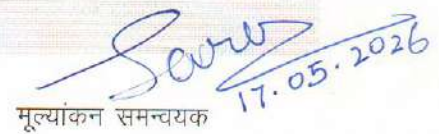 17.05.2026
मूल्यांकन समन्वयक